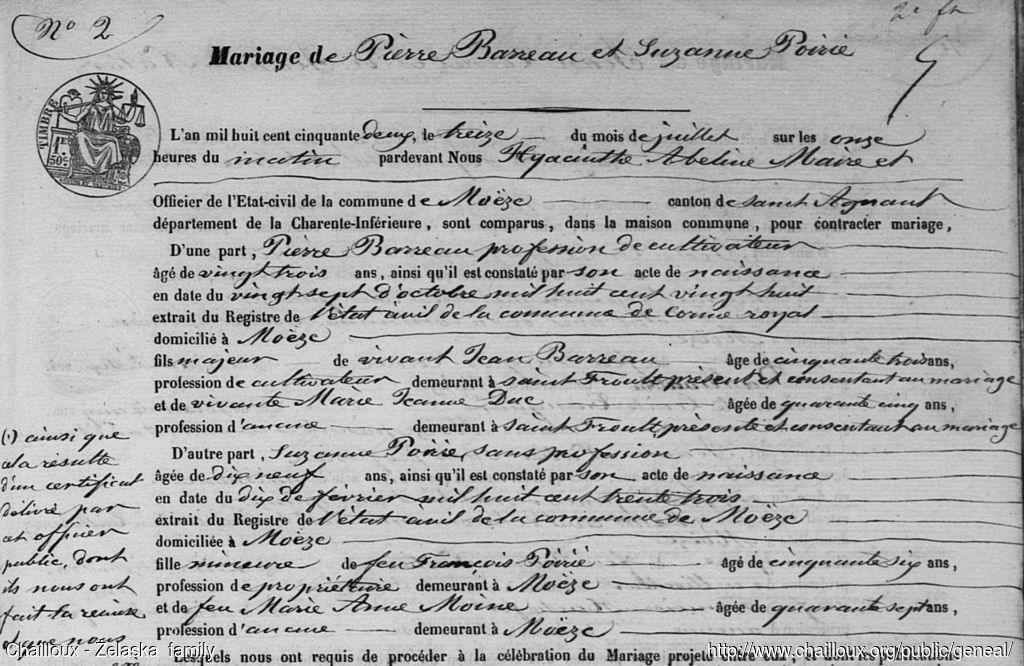 No 2
2e fn
Mariage de Pierre Barreau et Suzanne Poirié
TIMBRE
1F. 50c.
L'an mil huit cent cinquante deux, le treize du mois de juillet sur les onze
heures du matin pardevant Nous Hyacinthe Abeline Maire et
Officier de l'Etat-civil de la commune de Moëze canton de saint Agnant
département de la Charente-Inférieure, sont comparus, dans la maison commune, pour contracter mariage,
D'une part, Pierre Barreau profession de cultivateur
âgé de vingt trois ans, ainsi qu'il est constaté par son acte de naissance
en date du vingt sept d'octobre mil huit cent vingt huit
extrait du Registre de l'état civil de la commune de Corme royal
domicilié à Moëze
fils majeur de vivant Jean Barreau âge de cinquante trois ans,
profession de cultivateur demeurant à saint Froult présent et consentant au mariage
et de vivante Marie Jeanne Duc âgée de quarante cinq ans,
profession d'aucune demeurant à saint Froult présente et consentant au mariage
D'autre part, Suzanne Poirié, sans profession
âgée de dix neuf ans, ainsi qu'il est constaté par son acte de naissance
en date du dix de février mil huit cent trente trois
extrait du Registre de l'état civil de la commune de Moëze
domiciliée à Moëze
fille mineure de feu François Poirié âgé de cinquante six ans,
profession de propriétaire demeurant à Moëze
et de feu Marie Anne Moine âgée de quarante sept ans,
profession d'aucune demeurant à Moëze
Lesquels nous ont requis de procéder à la célébration du Mariage projeté entre eux
(1) ainsi que
cela résulte
d'un certificat
délivré par
cet officier
public, dont
ils nous ont
fait la remise
et que nous
Chailloux - Zelaska family
http://www.chailloux.org/public/geneal/